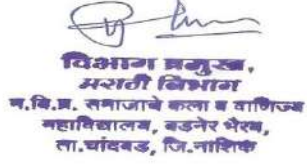 विभाग प्रमुख,
मराठी विभाग
म.वि.प्र. समाजाचे कला व वाणिज्य
महाविद्यालय, वडनेर भैरव,
ता.चांदवड, जि.नाशिक